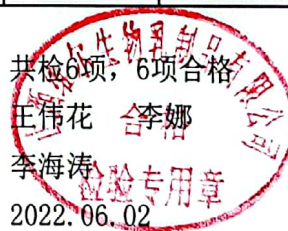 共检6项，6项合格
王伟花 李娜
李海涛
2022.06.02
生物乳制品有限公司
合格
检验专用章